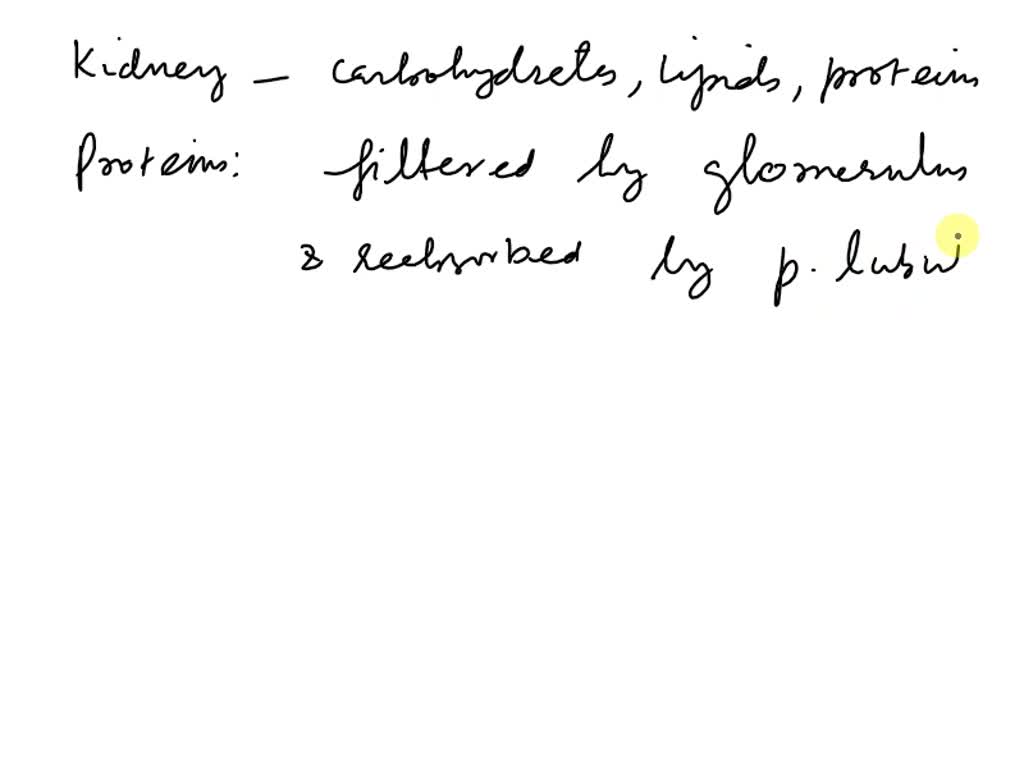 Kidney - carbohydrates, lipids, proteins
Proteins: filtered by glomerulus
& reabsorbed by p. tubu